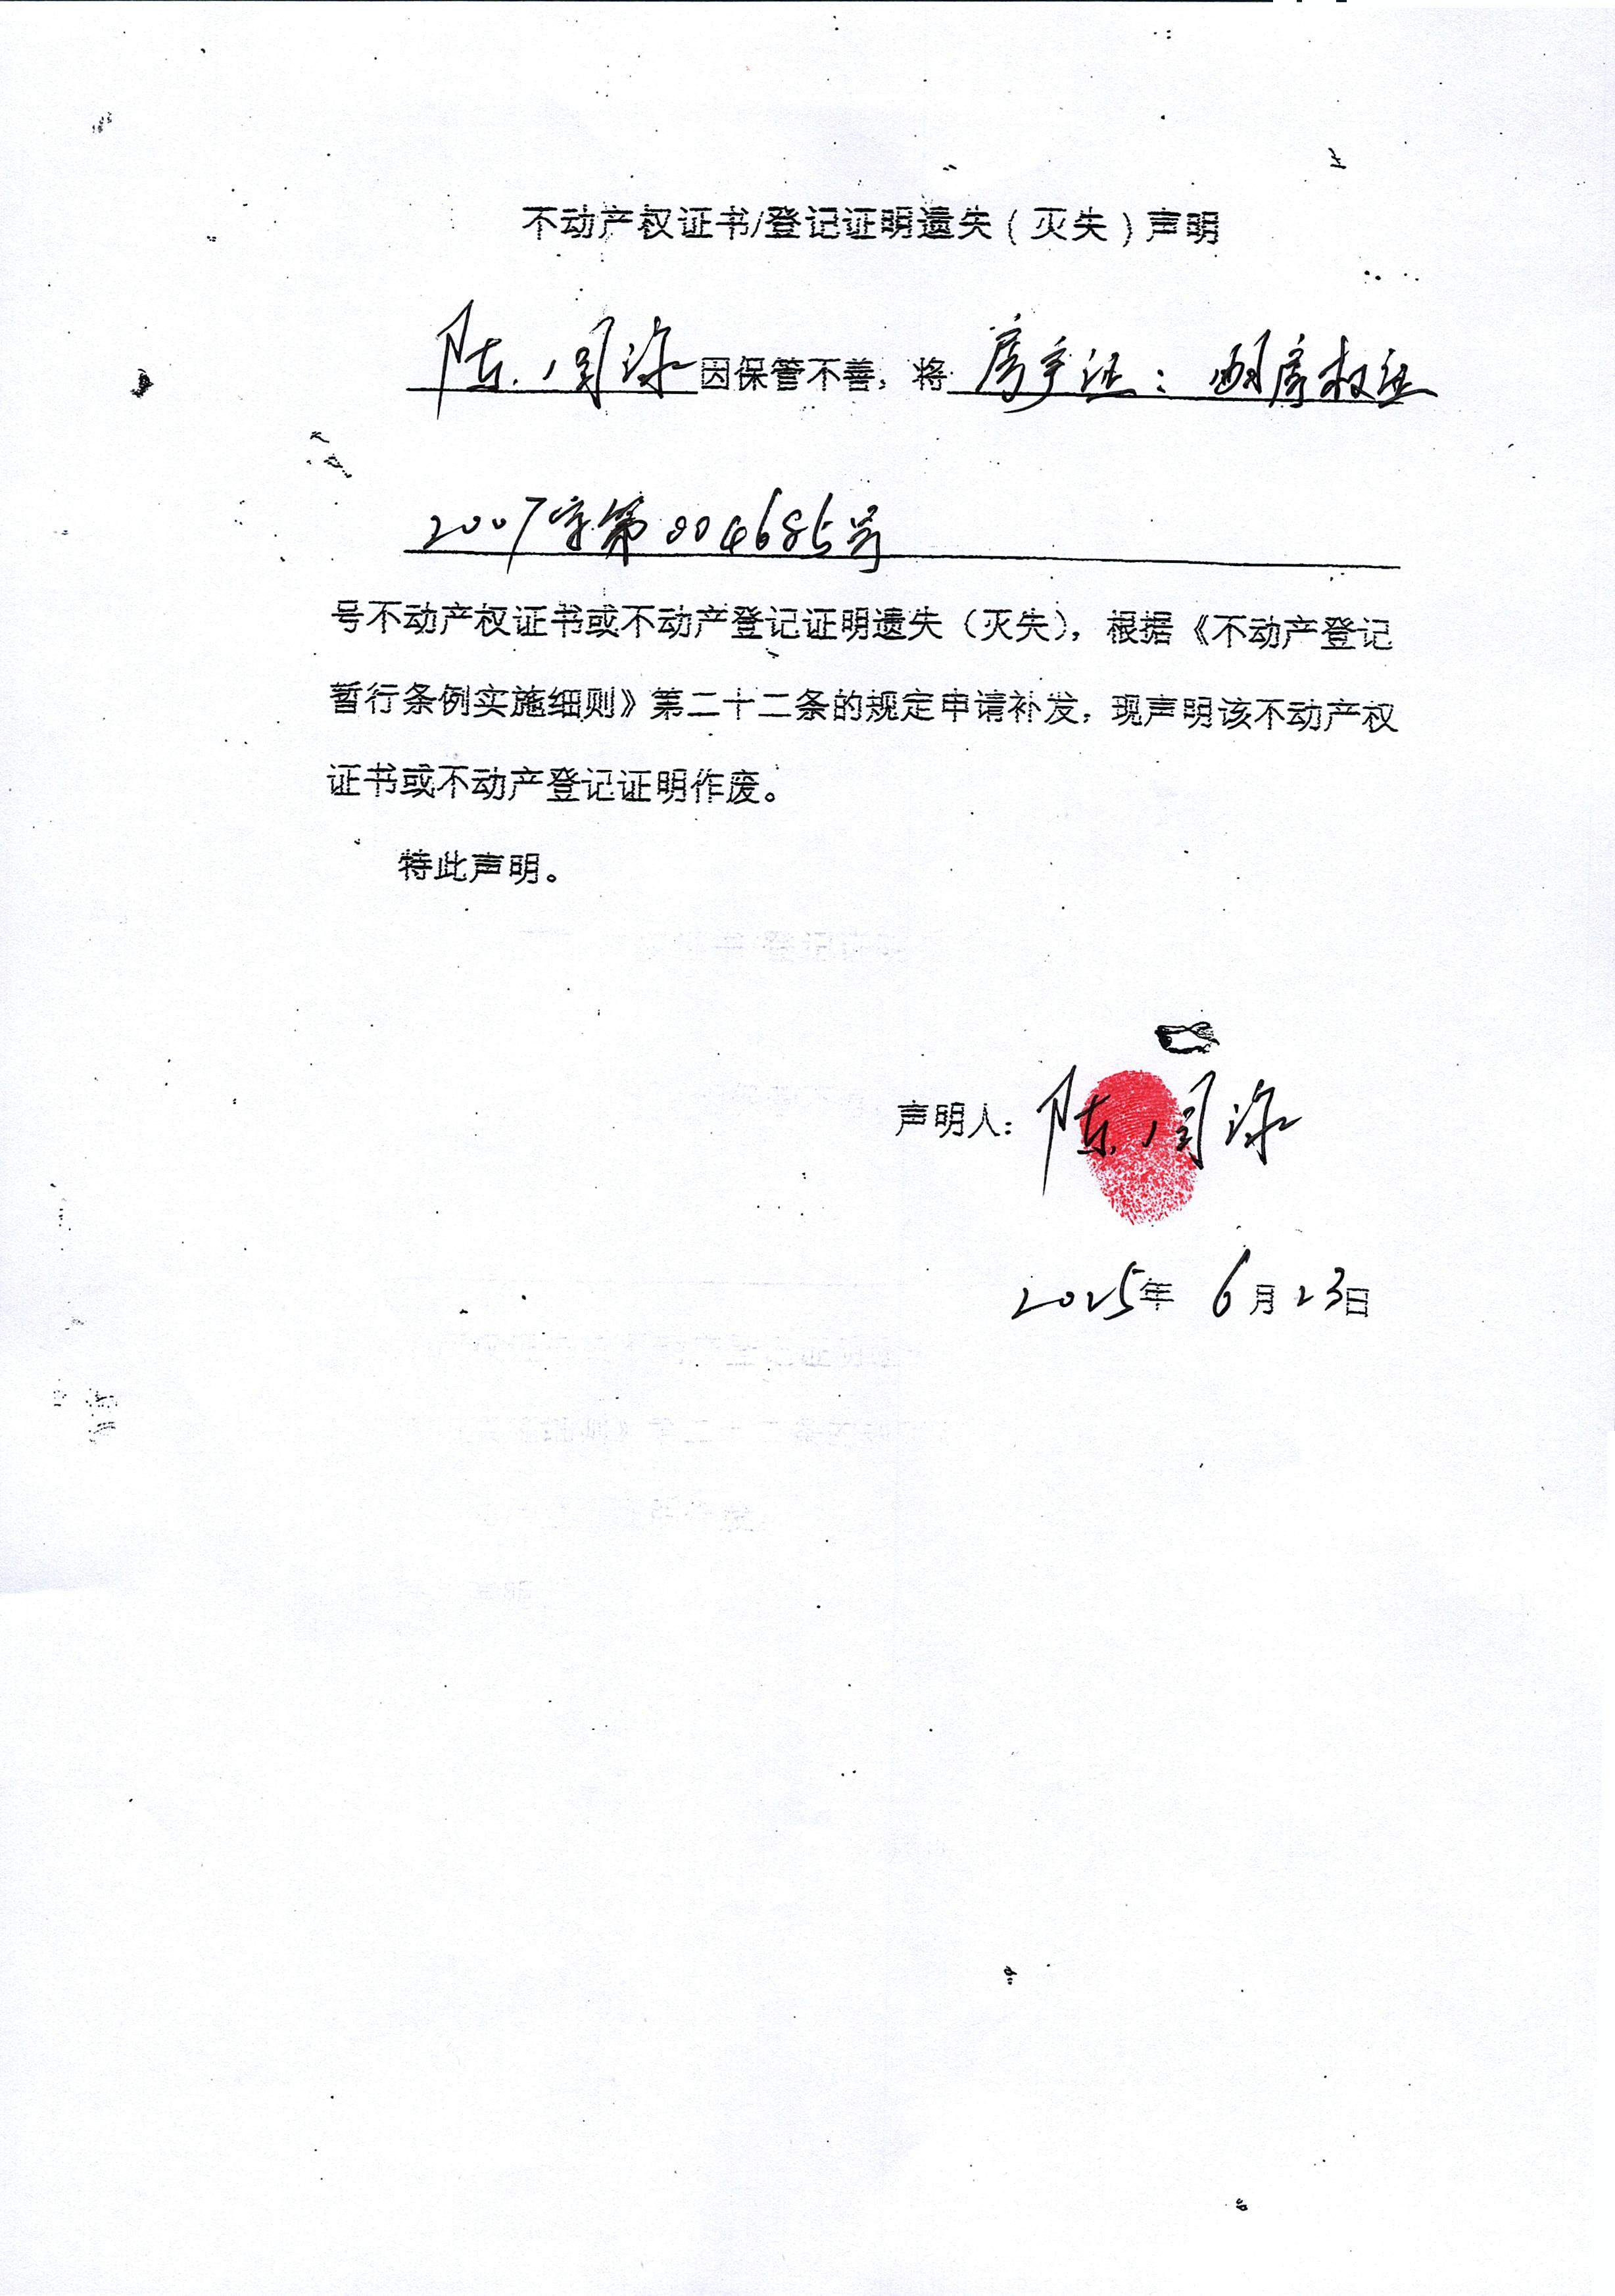 不动产权证书/登记证明遗失(灭失)声明
陈闰泳因保管不善,将房产证:房权证
2007字第004685号
号不动产权证书或不动产登记证明遗失(灭失),根据《不动产登记
暂行条例实施细则》第二十二条的规定申请补发,现声明该不动产权
证书或不动产登记证明作废。
特此声明。
声明人:陈闰泳
2025年 6月23日